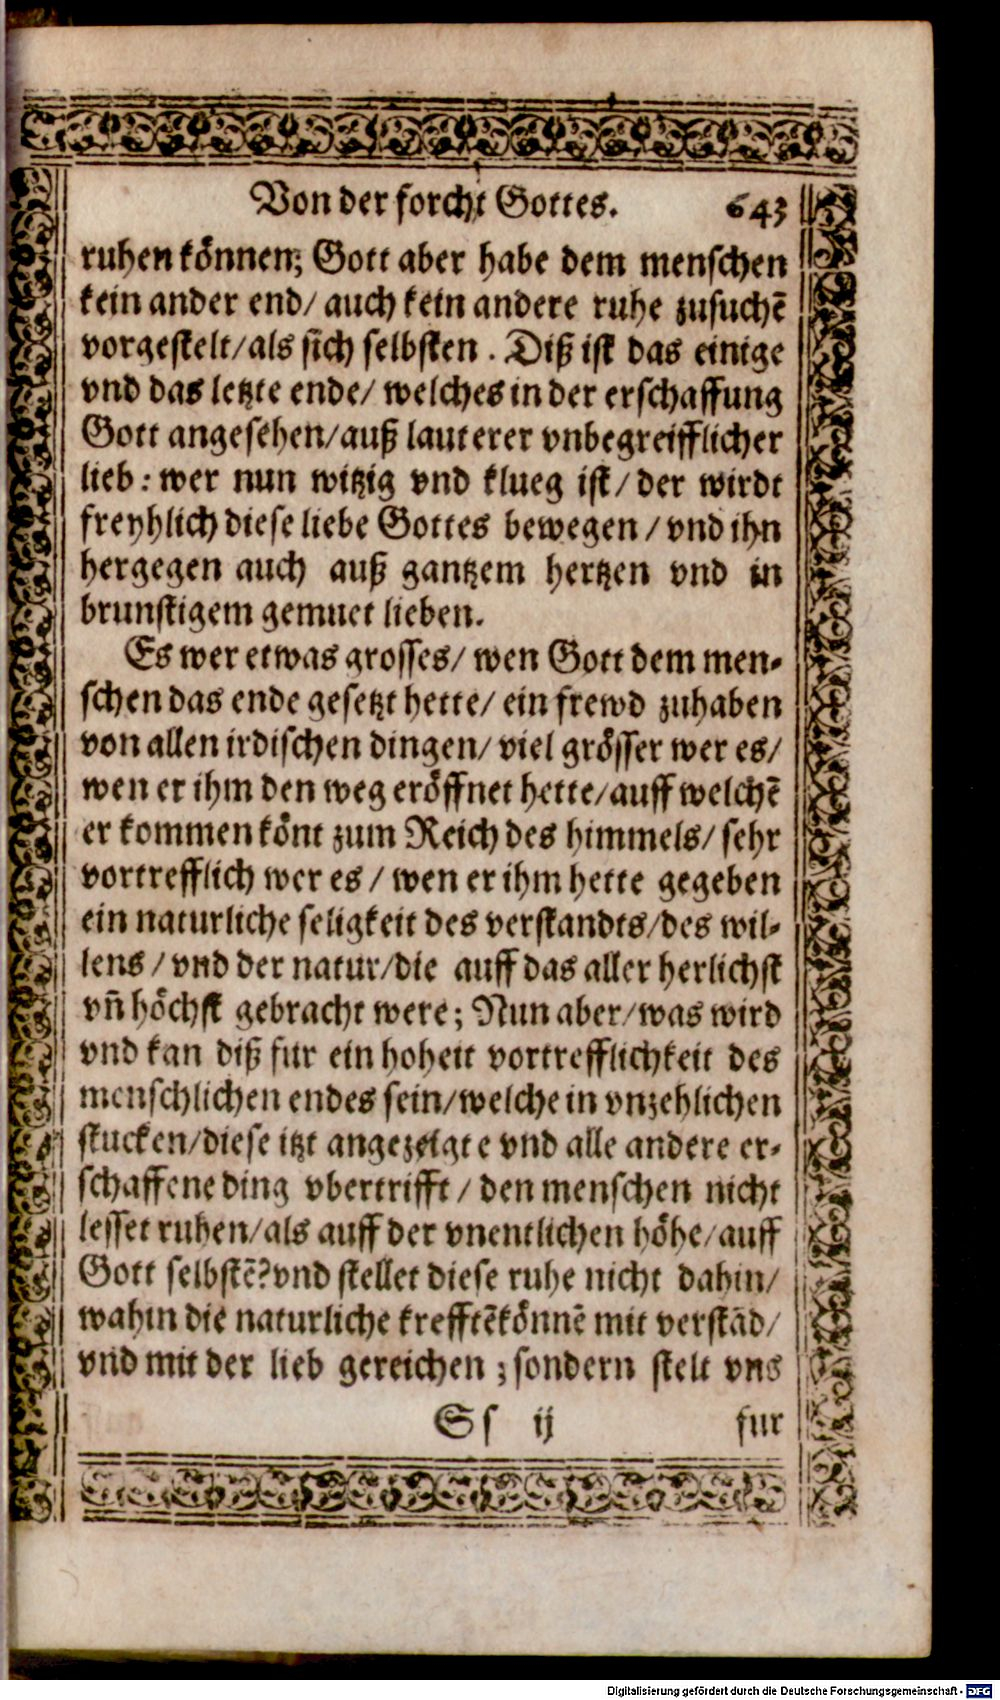 Von der forcht Gottes. 643
ruhen können; Gott aber habe dem menschen
kein ander end/ auch kein andere ruhe zusuchẽ
vorgestelt/als sich selbsten. Diß ist das einige
vnd das letzte ende/ welches in der erschaffung
Gott angesehen/auß lauterer vnbegreifflicher
lieb: wer nun witzig vnd klueg ist/ der wirdt
freyhlich diese liebe Gottes bewegen/ vnd ihn
hergegen auch auß gantzem hertzen vnd in
brunstigem gemuet lieben.
Es wer etwas grosses/ wen Gott dem men-
schen das ende gesetzt hette/ ein frewd zuhaben
von allen irdischen dingen/ viel grösser wer es/
wen er ihm den weg eröffnet hette/auff welchẽ
er kommen könt zum Reich des himmels/ sehr
vortrefflich wer es/ wen er ihm hette gegeben
ein naturliche seligkeit des verstandts/des wil-
lens/ vnd der natur/die auff das aller herlichst
vñ höchst gebracht were; Nun aber/was wird
vnd kan diß fur ein hoheit vortrefflichkeit des
menschlichen endes sein/welche in vnzehlichen
stucken/diese itzt angezeigte vnd alle andere er-
schaffene ding vbertrifft/ den menschen nicht
lesset ruhen/als auff der vnentlichen höhe/auff
Gott selbstẽ?vnd stellet diese ruhe nicht dahin/
wahin die naturliche krefftẽ könnẽ mit verstãd/
vnd mit der lieb gereichen; sondern stelt vns
Ss ij fur
Digitalisierung gefördert durch die Deutsche Forschungsgemeinschaft - DFG